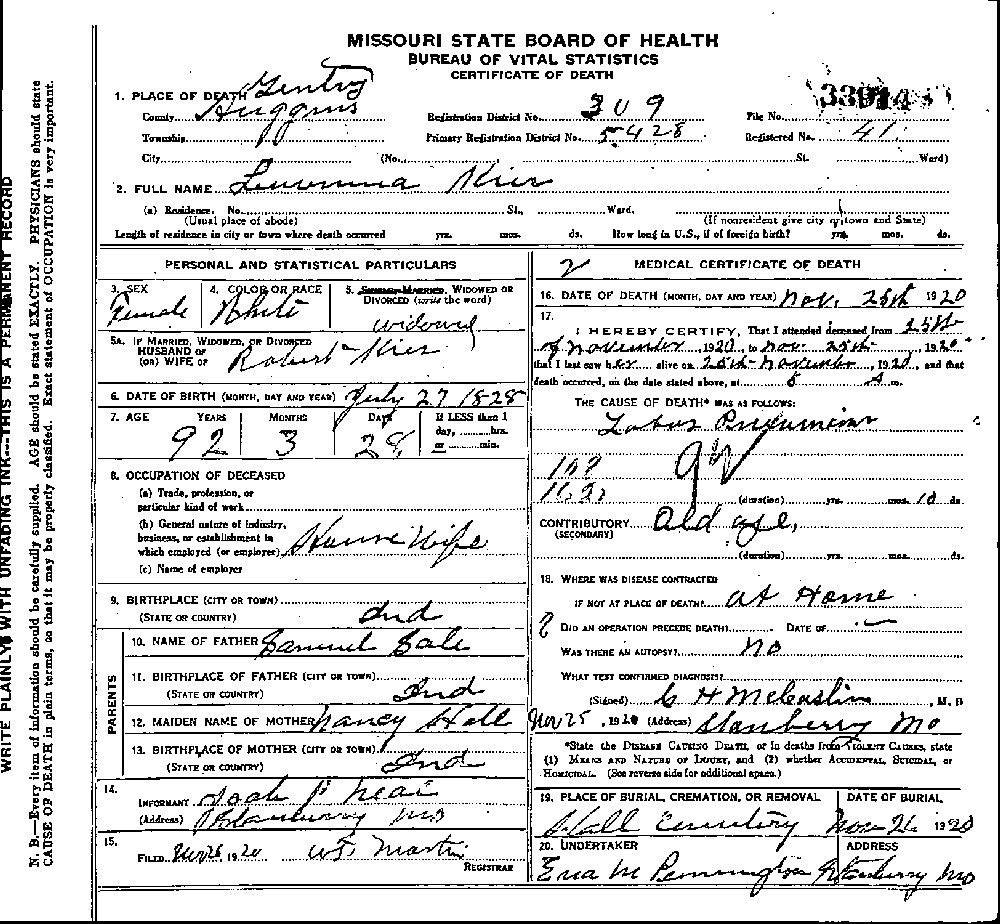 MISSOURI STATE BOARD OF HEALTH
BUREAU OF VITAL STATISTICS
CERTIFICATE OF DEATH
1. PLACE OF DEATH Gentry
County Huggins Registration District No. 309 File No. 33914
Township Primary Registration District No. 5428 Registered No. 41
City (No. St. Ward)
2. FULL NAME Kier
(a) Residence. No. St., Ward.
(Usual place of abode) (If nonresident give city or town and State)
Length of residence in city or town where death occurred yrs. mos. ds. How long in U.S., if of foreign birth? yrs. mos. ds.
PERSONAL AND STATISTICAL PARTICULARS
3. SEX 4. COLOR OR RACE 5. Single, Married, Widowed or Divorced (write the word)
Female White widowed
5A. If Married, Widowed, or Divorced
HUSBAND of
(or) WIFE of Robert Kier
6. DATE OF BIRTH (MONTH, DAY AND YEAR) July 27 1828
7. AGE YEARS MONTHS Days If LESS than 1
day, hrs.
or min.
92 3 28
8. OCCUPATION OF DECEASED
(a) Trade, profession, or
particular kind of work
(b) General nature of industry,
business, or establishment in
which employed (or employer) House Wife
(c) Name of employer
9. BIRTHPLACE (CITY OR TOWN)
(STATE OR COUNTRY) Ind
PARENTS
10. NAME OF FATHER Samuel Gale
11. BIRTHPLACE OF FATHER (CITY OR TOWN)
(STATE OR COUNTRY) Ind
12. MAIDEN NAME OF MOTHER Nancy Hall
13. BIRTHPLACE OF MOTHER (CITY OR TOWN)
(STATE OR COUNTRY) Ind
14.
INFORMANT
(Address) Stanberry Mo
15.
FILED Nov 26 1920 Martin
REGISTRAR
2 MEDICAL CERTIFICATE OF DEATH
16. DATE OF DEATH (MONTH, DAY AND YEAR) Nov. 25th 1920
17.
I HEREBY CERTIFY, That I attended deceased from 25th
of November, 1920, to Nov. 25th, 1920
that I last saw her alive on 25th November, 1920, and that
death occurred, on the date stated above, at 8 A m.
THE CAUSE OF DEATH* WAS AS FOLLOWS:
Lobar Pneumonia
(duration) yrs. mos. 10 ds.
CONTRIBUTORY Old age,
(SECONDARY)
(duration) yrs. mos. ds.
18. WHERE WAS DISEASE CONTRACTED
IF NOT AT PLACE OF DEATH? at Home
DID AN OPERATION PRECEDE DEATH? DATE OF
WAS THERE AN AUTOPSY? no
WHAT TEST CONFIRMED DIAGNOSIS?
(Signed) M. D
Nov 25, 1920 (Address) Stanberry Mo
*State the Disease Causing Death, or in deaths from Violent Causes, state
(1) Means and Nature of Injury, and (2) whether Accidental, Suicidal, or
Homicidal. (See reverse side for additional space.)
19. PLACE OF BURIAL, CREMATION, OR REMOVAL DATE OF BURIAL
Hall Cemetery Nov 26 1920
20. UNDERTAKER ADDRESS
M Pennington Stanberry Mo
WRITE PLAINLY, WITH UNFADING INK---THIS IS A PERMANENT RECORD
N. B.—Every item of information should be carefully supplied. AGE should be stated EXACTLY. PHYSICIANS should state
CAUSE OF DEATH in plain terms, so that it may be properly classified. Exact statement of OCCUPATION is very important.